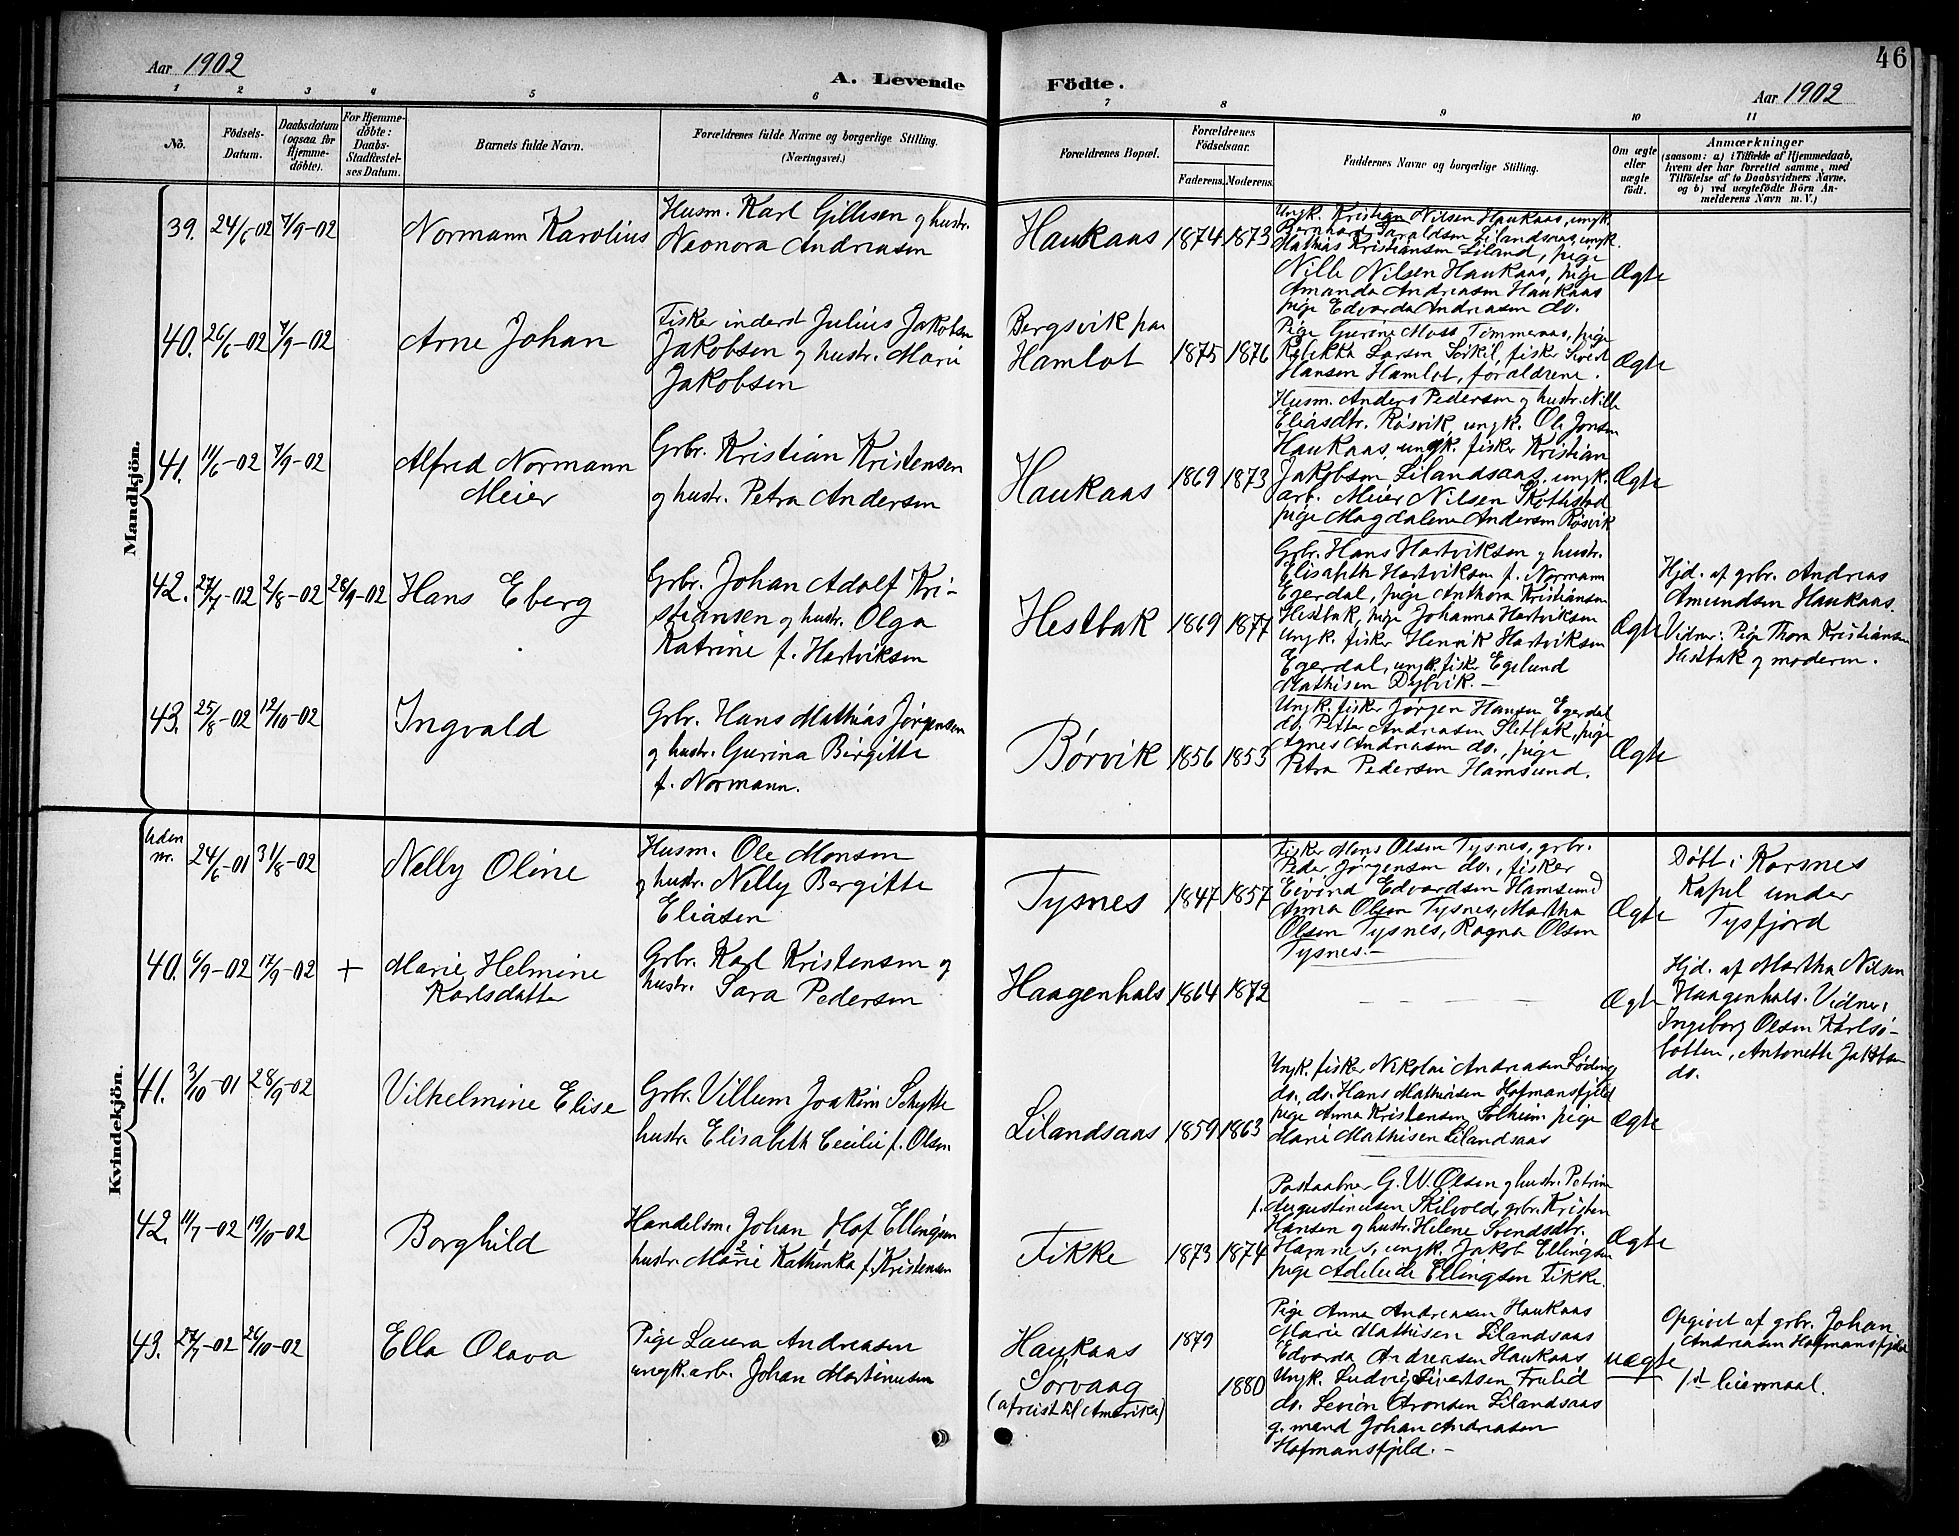 46
Aar 1902
A. Levende Födte.
Aar 1902
1 2 3 4 5 6 7 8 9 10 11
No.
Födsels-
Datum.
Daabsdatum
(ogsaa for
Hjemme-
döbte).
For Hjemme-
döbte:
Daabs-
Stadfæstel-
ses Datum.
Barnets fulde Navn.
Forældrenes fulde Navne og borgerlige Stilling.
(Næringsvei.)
Forældrenes Bopæl.
Forældrenes
Födselsaar.
Faderens. Moderens.
Faddernes Navne og borgerlige Stilling.
Om ægte
eller
uægte
født.
Anmærkninger
(saasom: a) i Tilfælde af Hjemmedaab,
hvem der har forrettet samme, med
Tilföielse af to Daabsvidners Navne,
og b) ved uægtefödte Börn An-
melderens Navn m. V.)
Mandkjön.
39. 24/6-02 7/9-02
Normann Karolius
Husm. Karl Gillesen og hustr.
Neonora Andreasen
Haukaas 1874 1873
Ungk. Kristian Nilsen Haukaas, ungk.
Bernhard Haraldsen Lilandsaas, ungk.
Mathias Kristiansen Liland, pige
Nille Nilsen Haukaas, pige
Amanda Andreasen Haukaas
pige Edvarda Andreasen do.
Ægte
40. 26/6-02 7/9-02
Arne Johan
Fisker inderst Julius Jakobsen
Jakobsen og hustr. Marie
Jakobsen
Bergsvik paa
Hamlot 1875 1876
Pige Gurine Moss Tømmeraas, pige
Rebekka Larsen Sørkil, fisker Sivert
Hansen Hamlot, forældrene.
Ægte
41. 11/6-02 7/9-02
Alfred Normann
Meier
Grbr. Kristian Kristensen
og hustr. Petra Andersen
Haukaas 1869 1873
Husm. Anders Pedersen og hustr. Nille
Eliasdtr. Røsvik, ungk. Ole Jonsen
Haukaas, ungk. fisker Kristian
Jakobsen Lilandsaas, ungk.
arb. Meier Nilsen Skottestad
pige Magdalene Andersen Røsvik
Ægte
42. 27/7-02 2/8-02 28/9-02
Hans Eberg
Grbr. Johan Adolf Kri-
stiansen og hustr. Olga
Katrine f. Hartviksen
Hestbak 1869 1877
Grbr. Hans Hartviksen og hustr.
Elisabeth Hartviksen f. Normann
Egerdal, pige Anthora Kristiansen
Hestbak, pige Johanna Hartviksen
ungk. fisker Henrik Hartviksen
Egerdal, ungk. fisker Egelund
Mathisen Dybvik.—
Ægte
Hjd. af grbr. Andreas
Amundsen Haukaas.
Vidner: Pige Thora Kristiansen
Hestbak og moderen.
43. 25/8-02 12/10-02
Ingvald
Grbr. Hans Mathias Jørgensen
og hustr. Gurina Birgitte
f. Normann.
Børvik 1856 1853
Ungk. fisker Jørgen Hansen Egerdal
do. Petter Andreasen Sletbak, pige
Agnes Andreasen do., pige
Petra Pedersen Hamsund.
Ægte
Kvindekjön.
Uden
nr. 24/6-01 31/8-02
Nelly Oline
Husm. Ole Monsen
og hustr. Nelly Bergitte
Eliasen
Tysnes 1847 1857
Fisker Mons Olsen Tysnes, grbr.
Peder Jørgensen do., fisker
Eivind Edvardsen Hamsund
Anna Olsen Tysnes, Martha
Olsen Tysnes, Ragna Olsen
Tysnes.—
Ægte
Døbt i Korsnes
Kapel under
Tysfjord
40. 6/9-02 17/9-02 +
Marie Helmine
Karlsdatter
Grbr. Karl Kristensen og
hustr. Sara Pedersen
Haagenhals 1864 1872
— — — —
Ægte
Hjd. af Martha Nilsen
Haagenhals. Vidner:
Ingeborg Olsen Karlsø-
botten, Antonette Jakobsen
do.
41. 3/10-01 28/9-02
Vilhelmine Elise
Grbr. Villum Joakim Schytte
hustr. Elisabeth Cecilie f. Olsen
Lilandsaas 1859 1863
Ungk. fisker Nikolai Andreasen Løding
do. do. Hans Mathisen Hofmansfjeld
pige Anna Kristensen Solheim, pige
Marie Mathisen Lilandsaas
Ægte
42. 11/7-02 19/10-02
Borghild
Handelsm. Johan Hof Ellingsen
hustr. Marie Kathinka f. Kristensen
2 1
Fikke 1873 1874
Postaabner G. W. Olsen og hustr. Petrine
f. Augustinusen Skilvold, grbr. Kristen
Hansen og hustr. Helene Svendsdtr.
Hamnes, ungk. Jakob Ellingsen
pige Adeleide Ellingsen Fikke.
Ægte
43. 27/7-02 26/10-02
Ella Olava
Pige Laura Andreasen
ungk. arb. Johan Martinusen
Haukaas 1879
Sørvaag
(afreist til Amerika) 1880
Pige Anna Andreasen Haukaas
Marie Mathisen Lilandsaas
Edvarda Andreasen Haukaas
Ungk. Ludvig Sivertsen Frulid
do. Levion Aronsen Lilandsaas
g. mand Johan Andreasen
Hofmansfjeld.—
uægte
Opgivet af grbr. Johan
Andreasen Hofmansfjeld
1ste leiermaal.